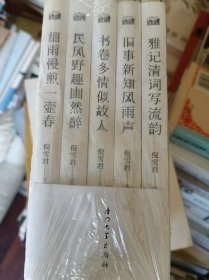 细雨慢煎一壶春
倪雪君
民风野趣幽然醉
倪雪君
书卷多情似故人
倪雪君
旧事新知风雨声
倪雪君
雅记清词写流韵
倪雪君
厦门大学出版社